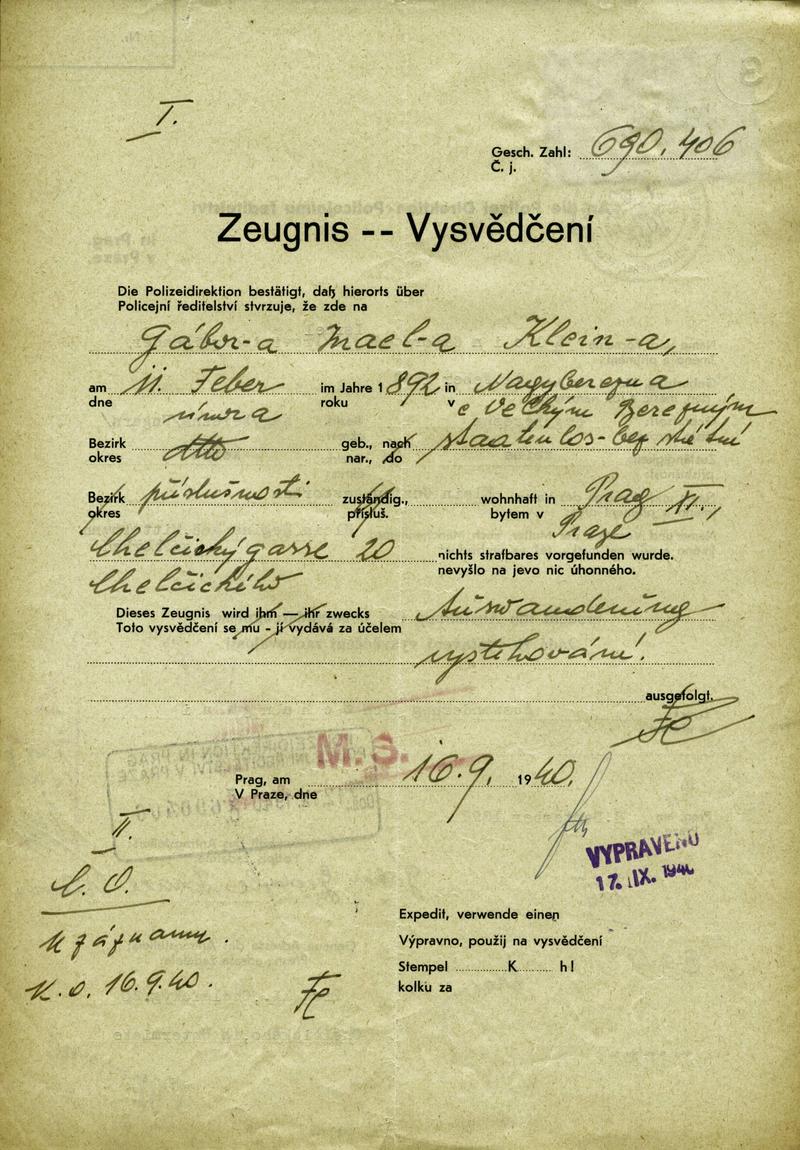 I.
Gesch. Zahl: 690.406
Č. j.
Zeugnis -- Vysvědčení
Die Polizeidirektion bestätigt, daß hierorts über
Policejní ředitelství stvrzuje, že zde na
Gábor-a Israel-a Klein-a,
am 11. Feber im Jahre 1892 in Nagyberezna
dne února roku v e Velkým Berezným
Bezirk geb., nach staatenlos-bez státní
okres nar., do
Bezirk příslušnosti zuständig., wohnhaft in Prag XI.,
okres přísluš. bytem v Praze
Chelčickýgasse 20 nichts strafbares vorgefunden wurde.
Chelčického nevyšlo na jevo nic úhonného.
Dieses Zeugnis wird ihm — ihr zwecks Auswanderung
Toto vysvědčení se mu - jí vydává za účelem
vystěhování.
ausgefolgt.
M. S.
Prag, am 16.9. 1940.
V Praze, dne
II.
VYPRAVENO
17. IX. 1940
K záznamu.
K.o. 16.9.40.
Expedit, verwende einen
Výpravno, použij na vysvědčení
Stempel K hl
kolku za